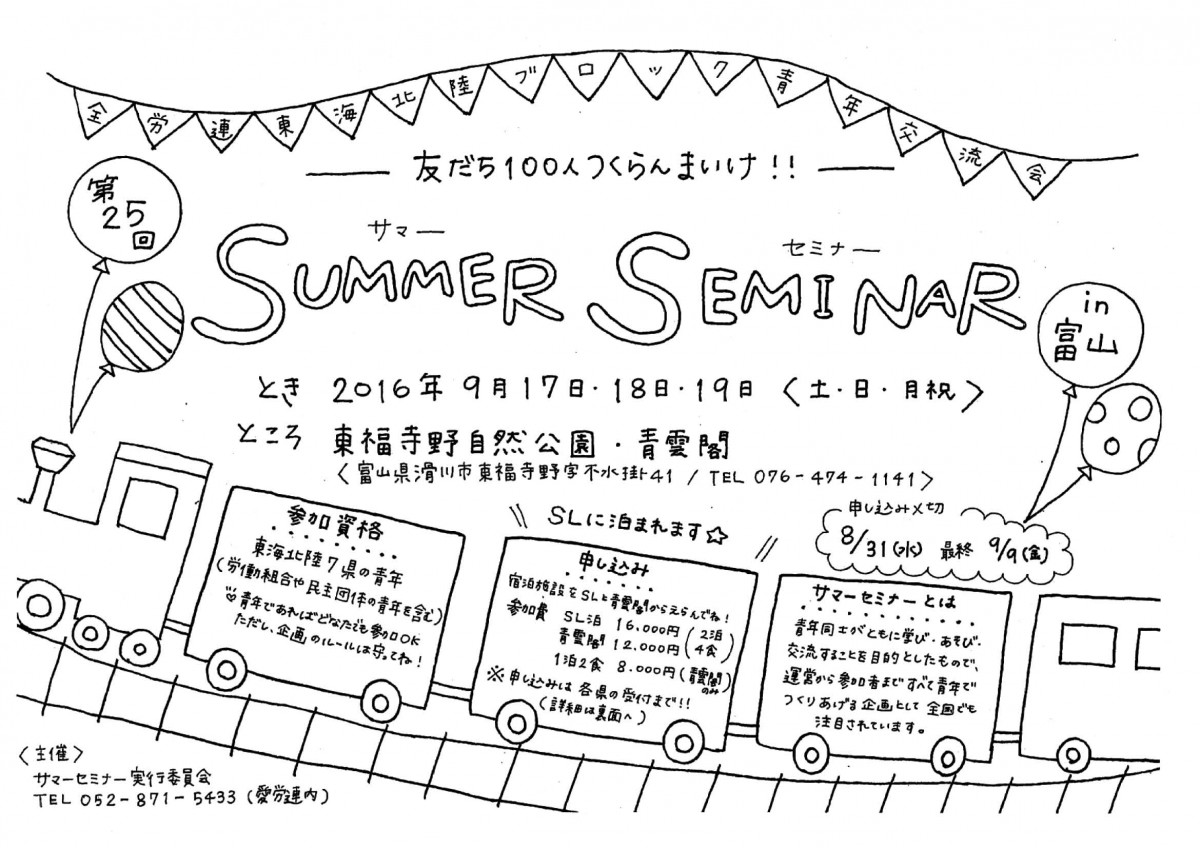 全労連東海北陸ブロック青年交流会
友だち100人つくらんまいけ!!
第25回
サマー セミナー
SUMMER SEMINAR
in 富山
とき 2016年 9月17日・18日・19日 〈土・日・月祝〉
ところ 東福寺野自然公園・青雲閣
〈富山県滑川市東福寺野字不水掛41 / TEL 076-474-1141〉
SLに泊まれます☆
申し込み〆切
8/31(水) 最終 9/9(金)
参加資格
東海北陸7県の青年
(労働組合や民主団体の青年を含む)
♡青年であればどなたでも参加OK
ただし、企画のルールは守ってね!
申し込み
宿泊施設をSLと青雲閣からえらんでね!
参加費 SL泊 16.000円(2泊4食)
青雲閣 12.000円
1泊2食 8.000円(青雲閣のみ)
※申し込みは各県の受付まで!!
(詳細は裏面へ)
サマーセミナーとは
青年同士がともに学び・あそび・
交流することを目的としたもので、
運営から参加者まですべて青年で
つくりあげる企画として全国でも
注目されています。
〈主催〉
サマーセミナー実行委員会
TEL 052-871-5433 (愛労連内)